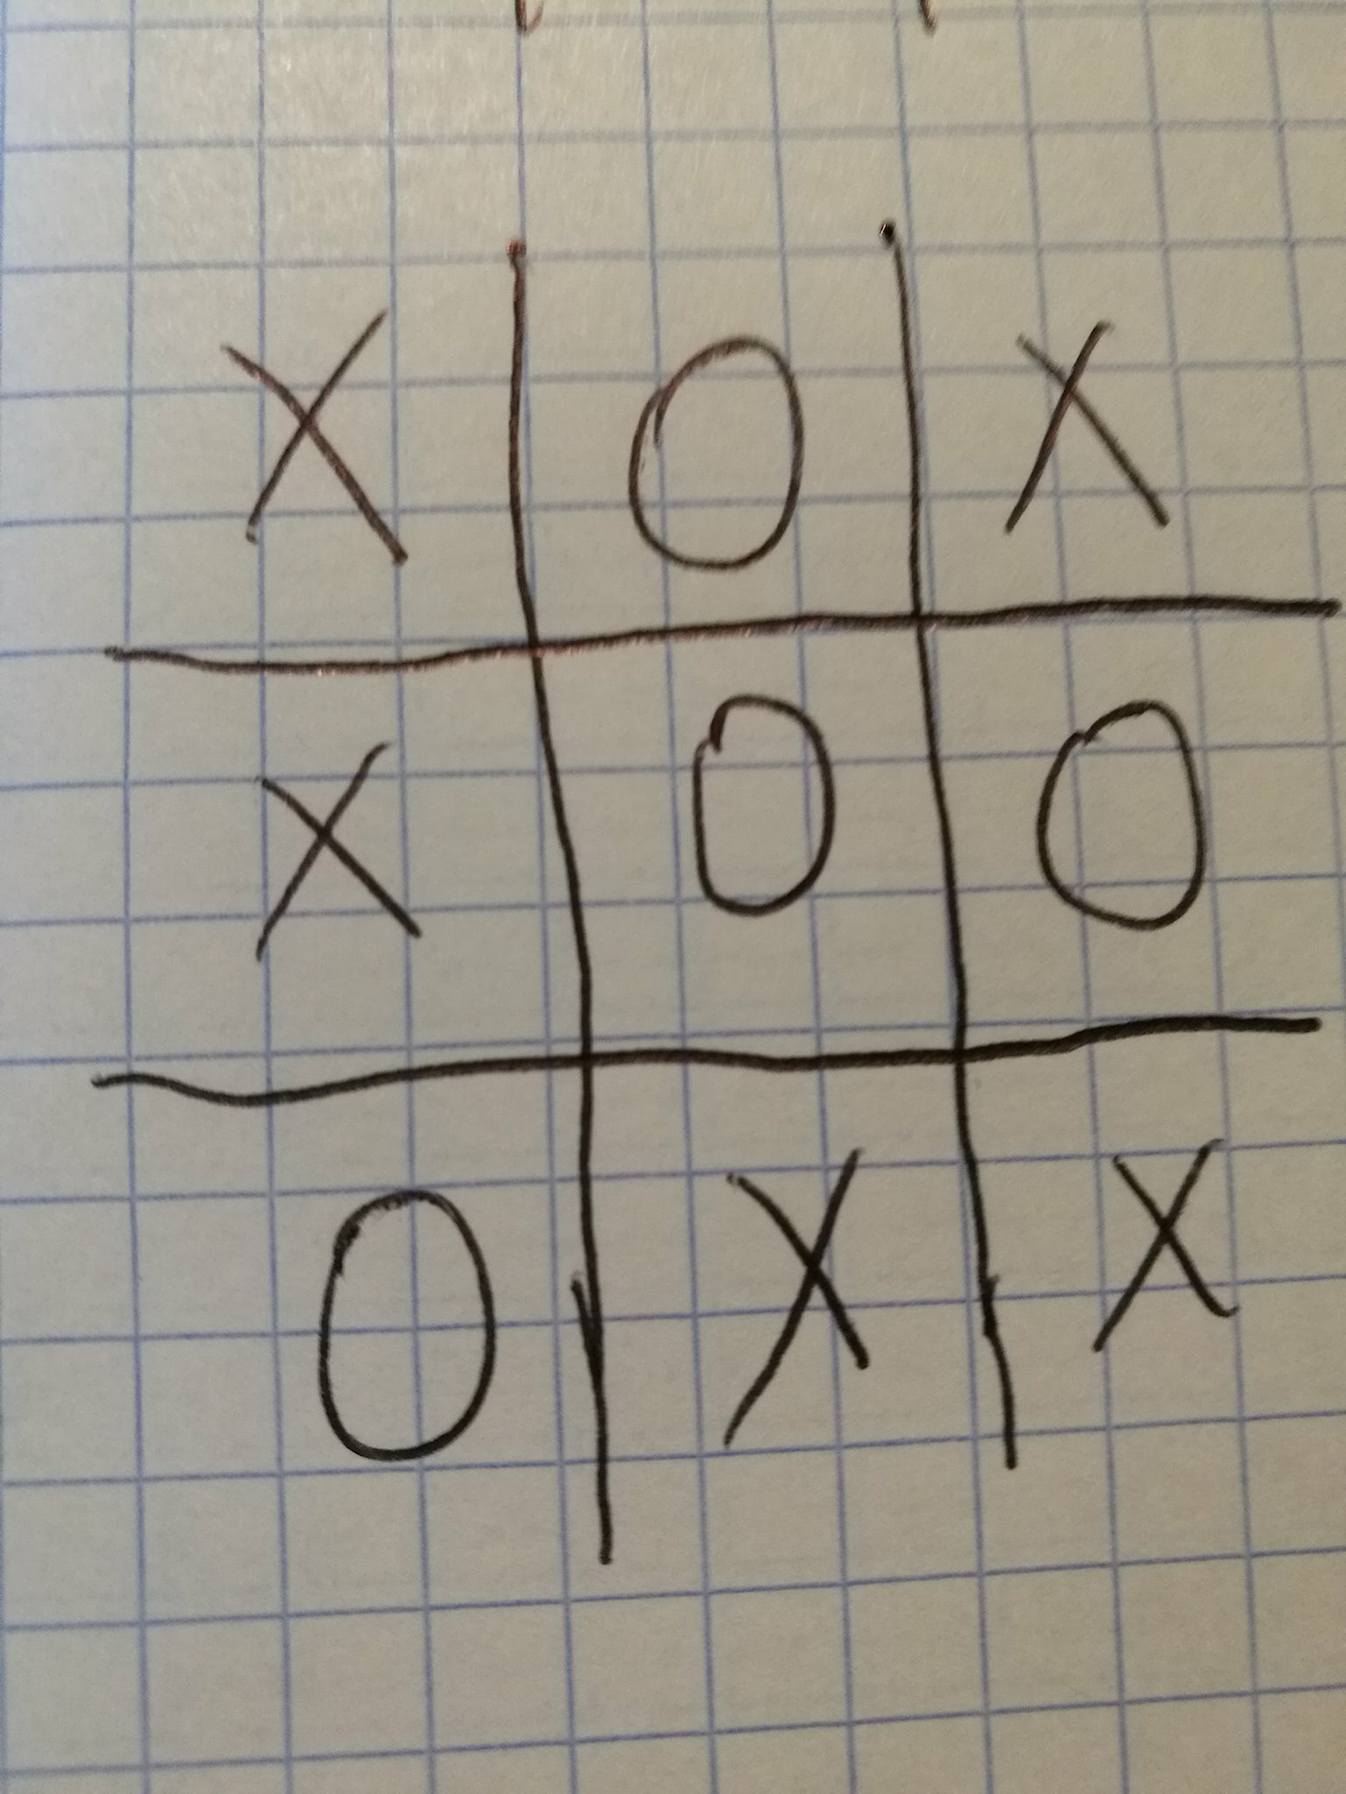 X O X
X O O
O X X